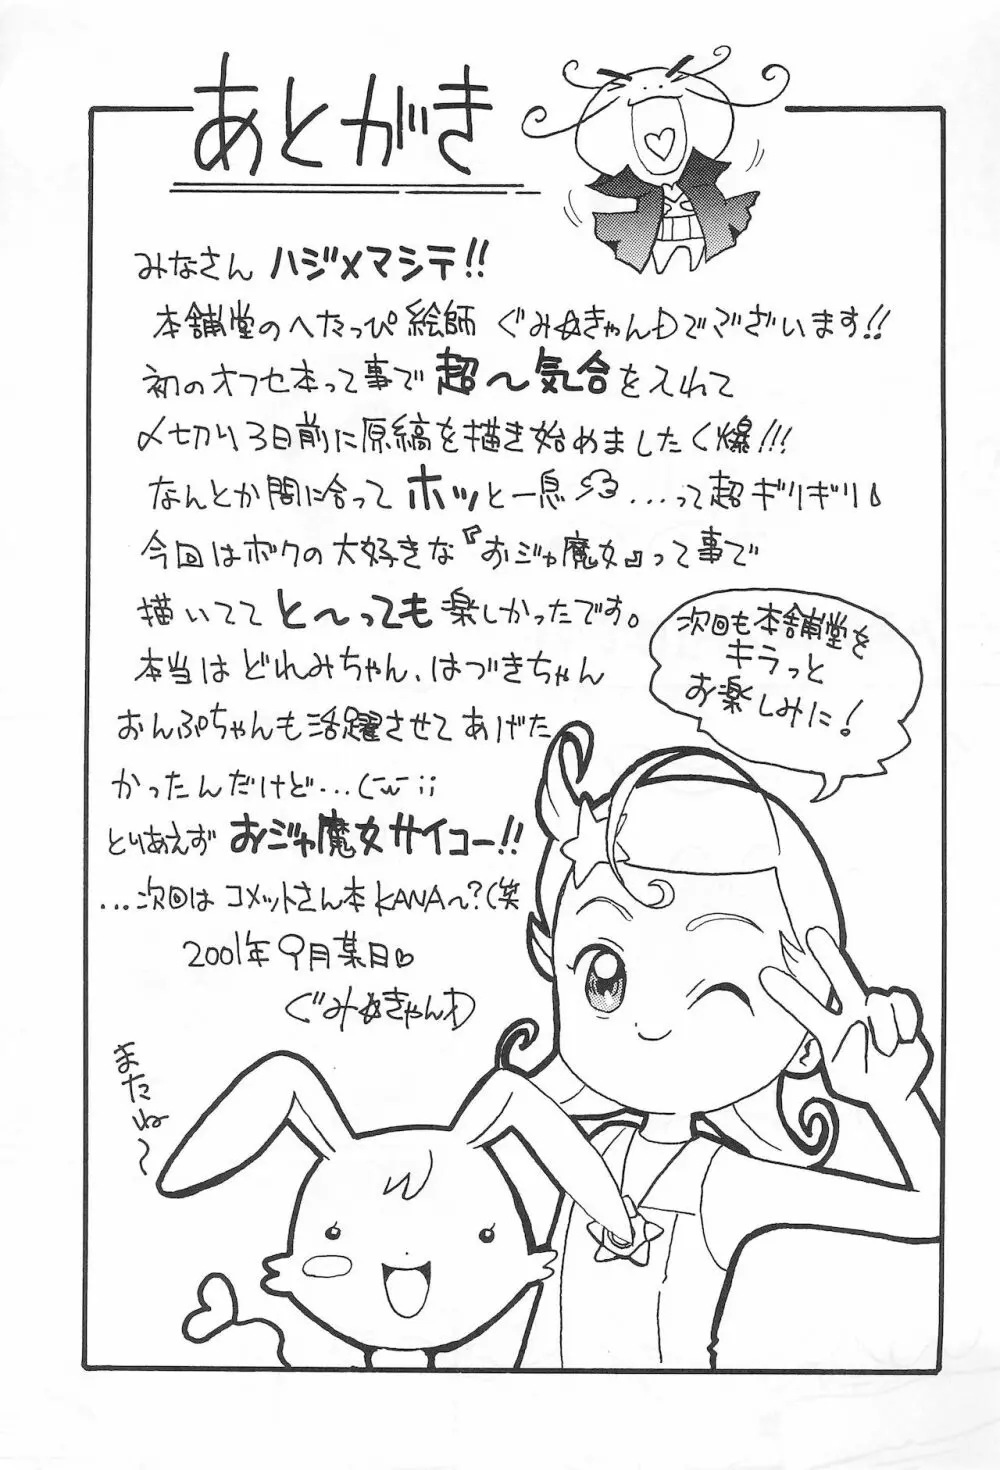 あとがき
みなさん ハジメマシテ!!
本舗堂のへたっぴ絵師 ぐみ☆きゃんDでございます!!
初のオフセ本って事で 超〜気合を入れて
〆切り3日前に原稿を描き始めましたく爆!!!
なんとか間に合って ホッと一息 ...って超ギリギリ
今回はボクの大好きな『おジャ魔女』って事で
描いてて と〜っても 楽しかったです。
本当は どれみちゃん、はづきちゃん
おんぷちゃんも活躍させて あげた
かったんだけど...(ーwー;;
とりあえず おジャ魔女サイコー!!
...次回は コメットさん本 KANA〜?(笑
2001年 9月某日♡
ぐみ☆きゃんD
次回も本舗堂を
キラっと
お楽しみに!
またね〜